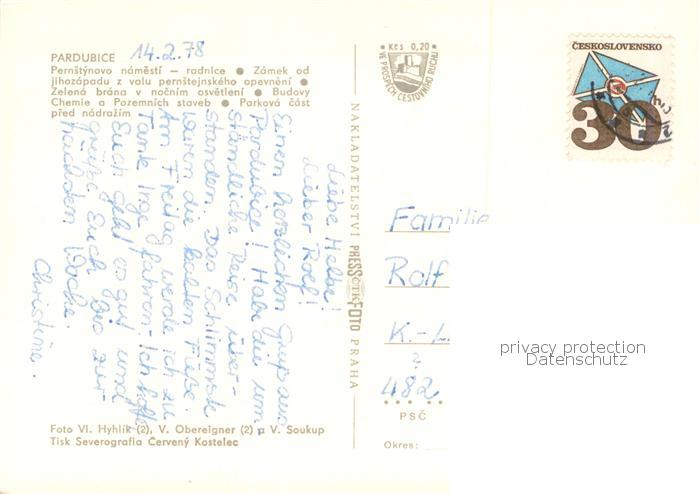 PARDUBICE 14.2.78
Pernštýnovo náměstí — radnice ● Zámek od
jihozápadu z valu pernštejnského opevnění ●
Zelená brána v nočním osvětlení ● Budovy
Chemie a Pozemních staveb ● Parková část
před nádražím
Liebe Helga!
Lieber Rolf!
Einen herzlichen Gruß aus
Pardubice! Habe die
ständliche Reise über-
standen. Das Schlimmste
waren die kalten Füße.
Am Freitag werde ich zu
Tante Inge fahren. Ich hoffe
Euch geht es gut und
grüße Euch bis zur
nächsten Woche.
Christine.
Foto Vl. Hyhlík (2), V. Obereigner (2) a V. Soukup
Tisk Severografia Červený Kostelec
NAKLADATELSTVÍ PRESSFOTO PRAHA
ČTK
Kčs 0,20
VE PROSPĚCH CESTOVNÍHO RUCHU
ČESKOSLOVENSKO
30
Familie
Rolf
K.-L
482
PSČ
Okres:
privacy protection
Datenschutz